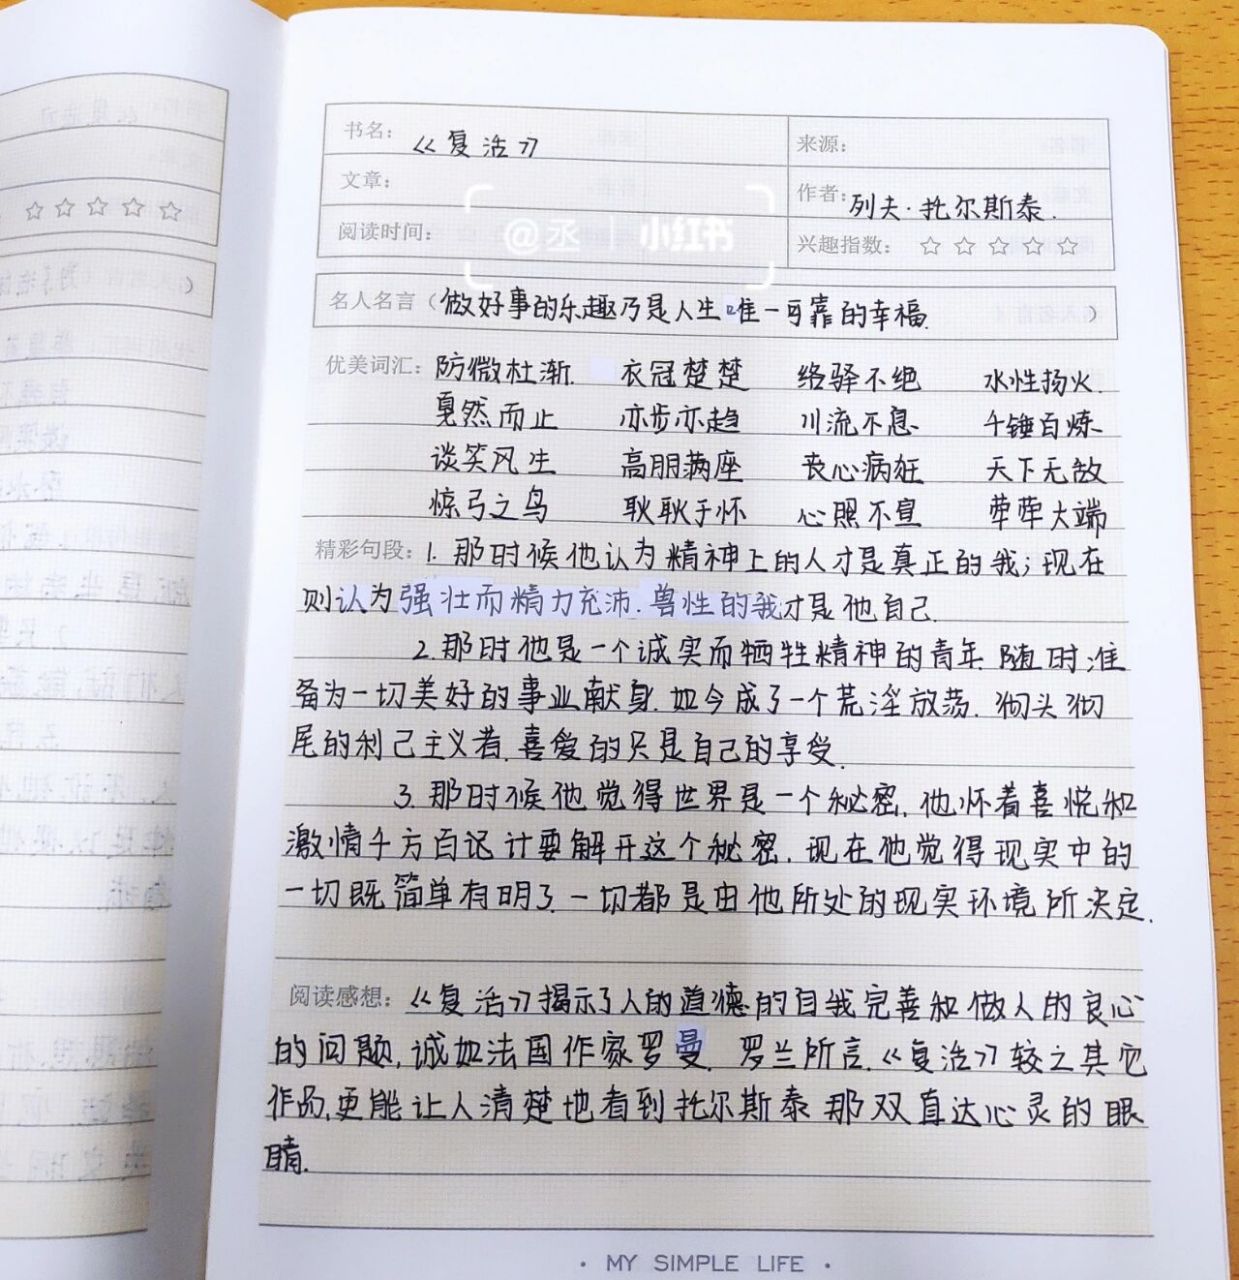 书名：《复活》
来源：
文章：
作者：列夫·托尔斯泰.
阅读时间：
兴趣指数：☆ ☆ ☆ ☆ ☆
@丞 | 小红书
名人名言（做好事的乐趣乃是人生唯一可靠的幸福.）
优美词汇：防微杜渐. 衣冠楚楚 络驿不绝 水性扬火.
戛然而止 亦步亦趋 川流不息 千锤百炼
谈笑风生 高朋满座 丧心病狂 天下无敌
惊弓之鸟 耿耿于怀 心照不宣 荦荦大端
精彩句段：1. 那时候他认为精神上的人才是真正的我；现在
则认为强壮而精力充沛.兽性的我才是他自己.
2.那时他是一个诚实而牺牲精神的青年 随时准
备为一切美好的事业献身.如今成了一个荒淫放荡.彻头彻
尾的利己主义者.喜爱的只是自己的享受.
3.那时候他觉得世界是一个秘密,他怀着喜悦和
激情千方百计要解开这个秘密.现在他觉得现实中的
一切既简单有明了.一切都是由他所处的现实环境所决定.
阅读感想：《复活》揭示了人的道德的自我完善和做人的良心
的问题,诚如法国作家罗曼.罗兰所言.《复活》较之其它
作品,更能让人清楚地看到托尔斯泰那双直达心灵的眼
睛.
· MY SIMPLE LIFE ·